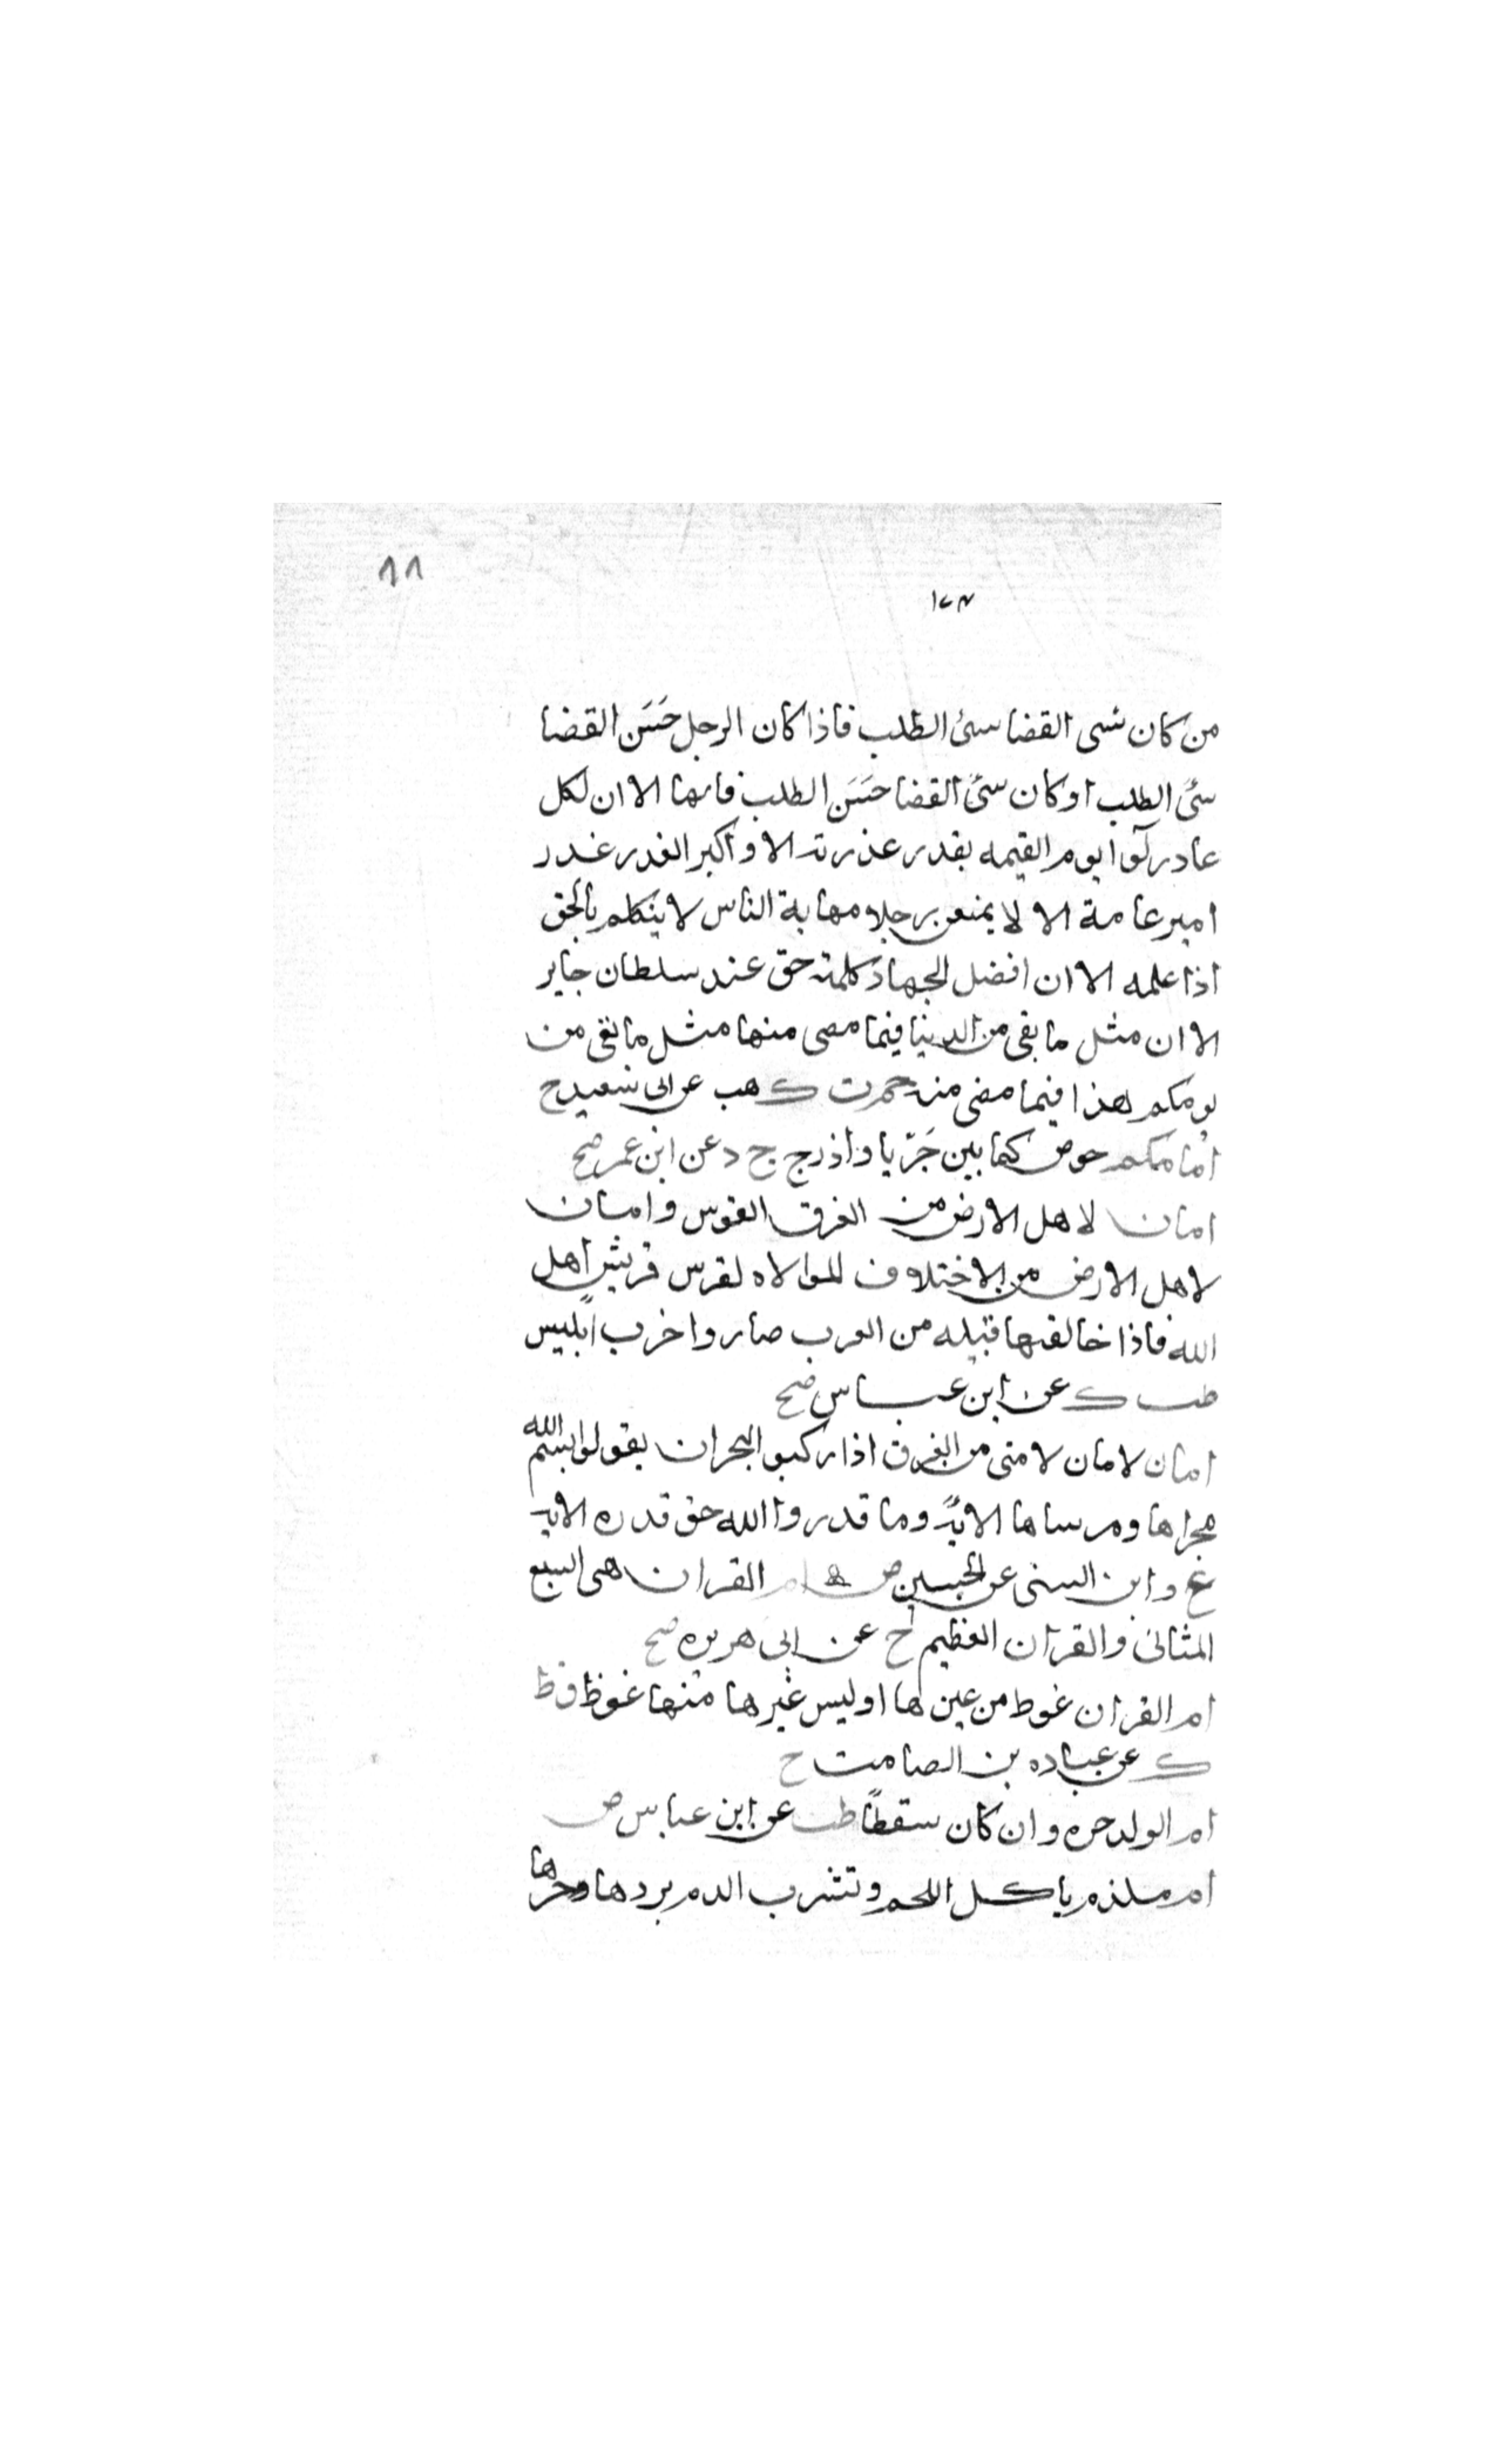 ٨٨
١٢٣
من كان سى القضا سئ الطلب فاذا كان الرجل حَسَن القضا
سئ الطلب او كان سئ القضا حَسَن الطلب فانها الا ان لكل
عادر لوا يوم القيمه بقدر عذرته الا واكبر الغدر غدر
امير عامة الا لا يمنعن رجلا مهابة الناس لا يتكلم بالحق
اذا علمه الا ان افضل الجهاد كلمة حق عند سلطان جاير
الا ان مثل ما بقى من الدنيا فيما مضى منها مثل ما بقى من
يومكم هذا فيما مضى منه حم ت ك هب عن ابى سعيد ح
امامكم حوض كما بين جَرْبا واذرح ح د عن ابن عمر صح
امان لاهل الارض من الغرق القوس وامان
لاهل الارض من الاختلاف الموالاه لقريس قريش اهل
الله فاذا خالفها قبيله من العرب صاروا حزب ابليس
طب ك عن ابن عباس صح
امان لامان لامتى من الغرق اذا ركبو البحر ان يقولوا بسم الله
مجراها ومرساها الاية وما قدروا الله حق قدره الاية
ع وابن السنى عن الحسين ض ام القران هى السبع
المثانى والقران العظيم خ عن ابى هريره صح
ام القران عوط من عين ها او ليس غيرها منها عوظ قط
ك عن عباده بن الصامت ح
ام الولد حره وان كان سقطًا طب عن ابن عباس ض
ام ملذم ياكل اللحم وتشرب الدم بردها وحرها